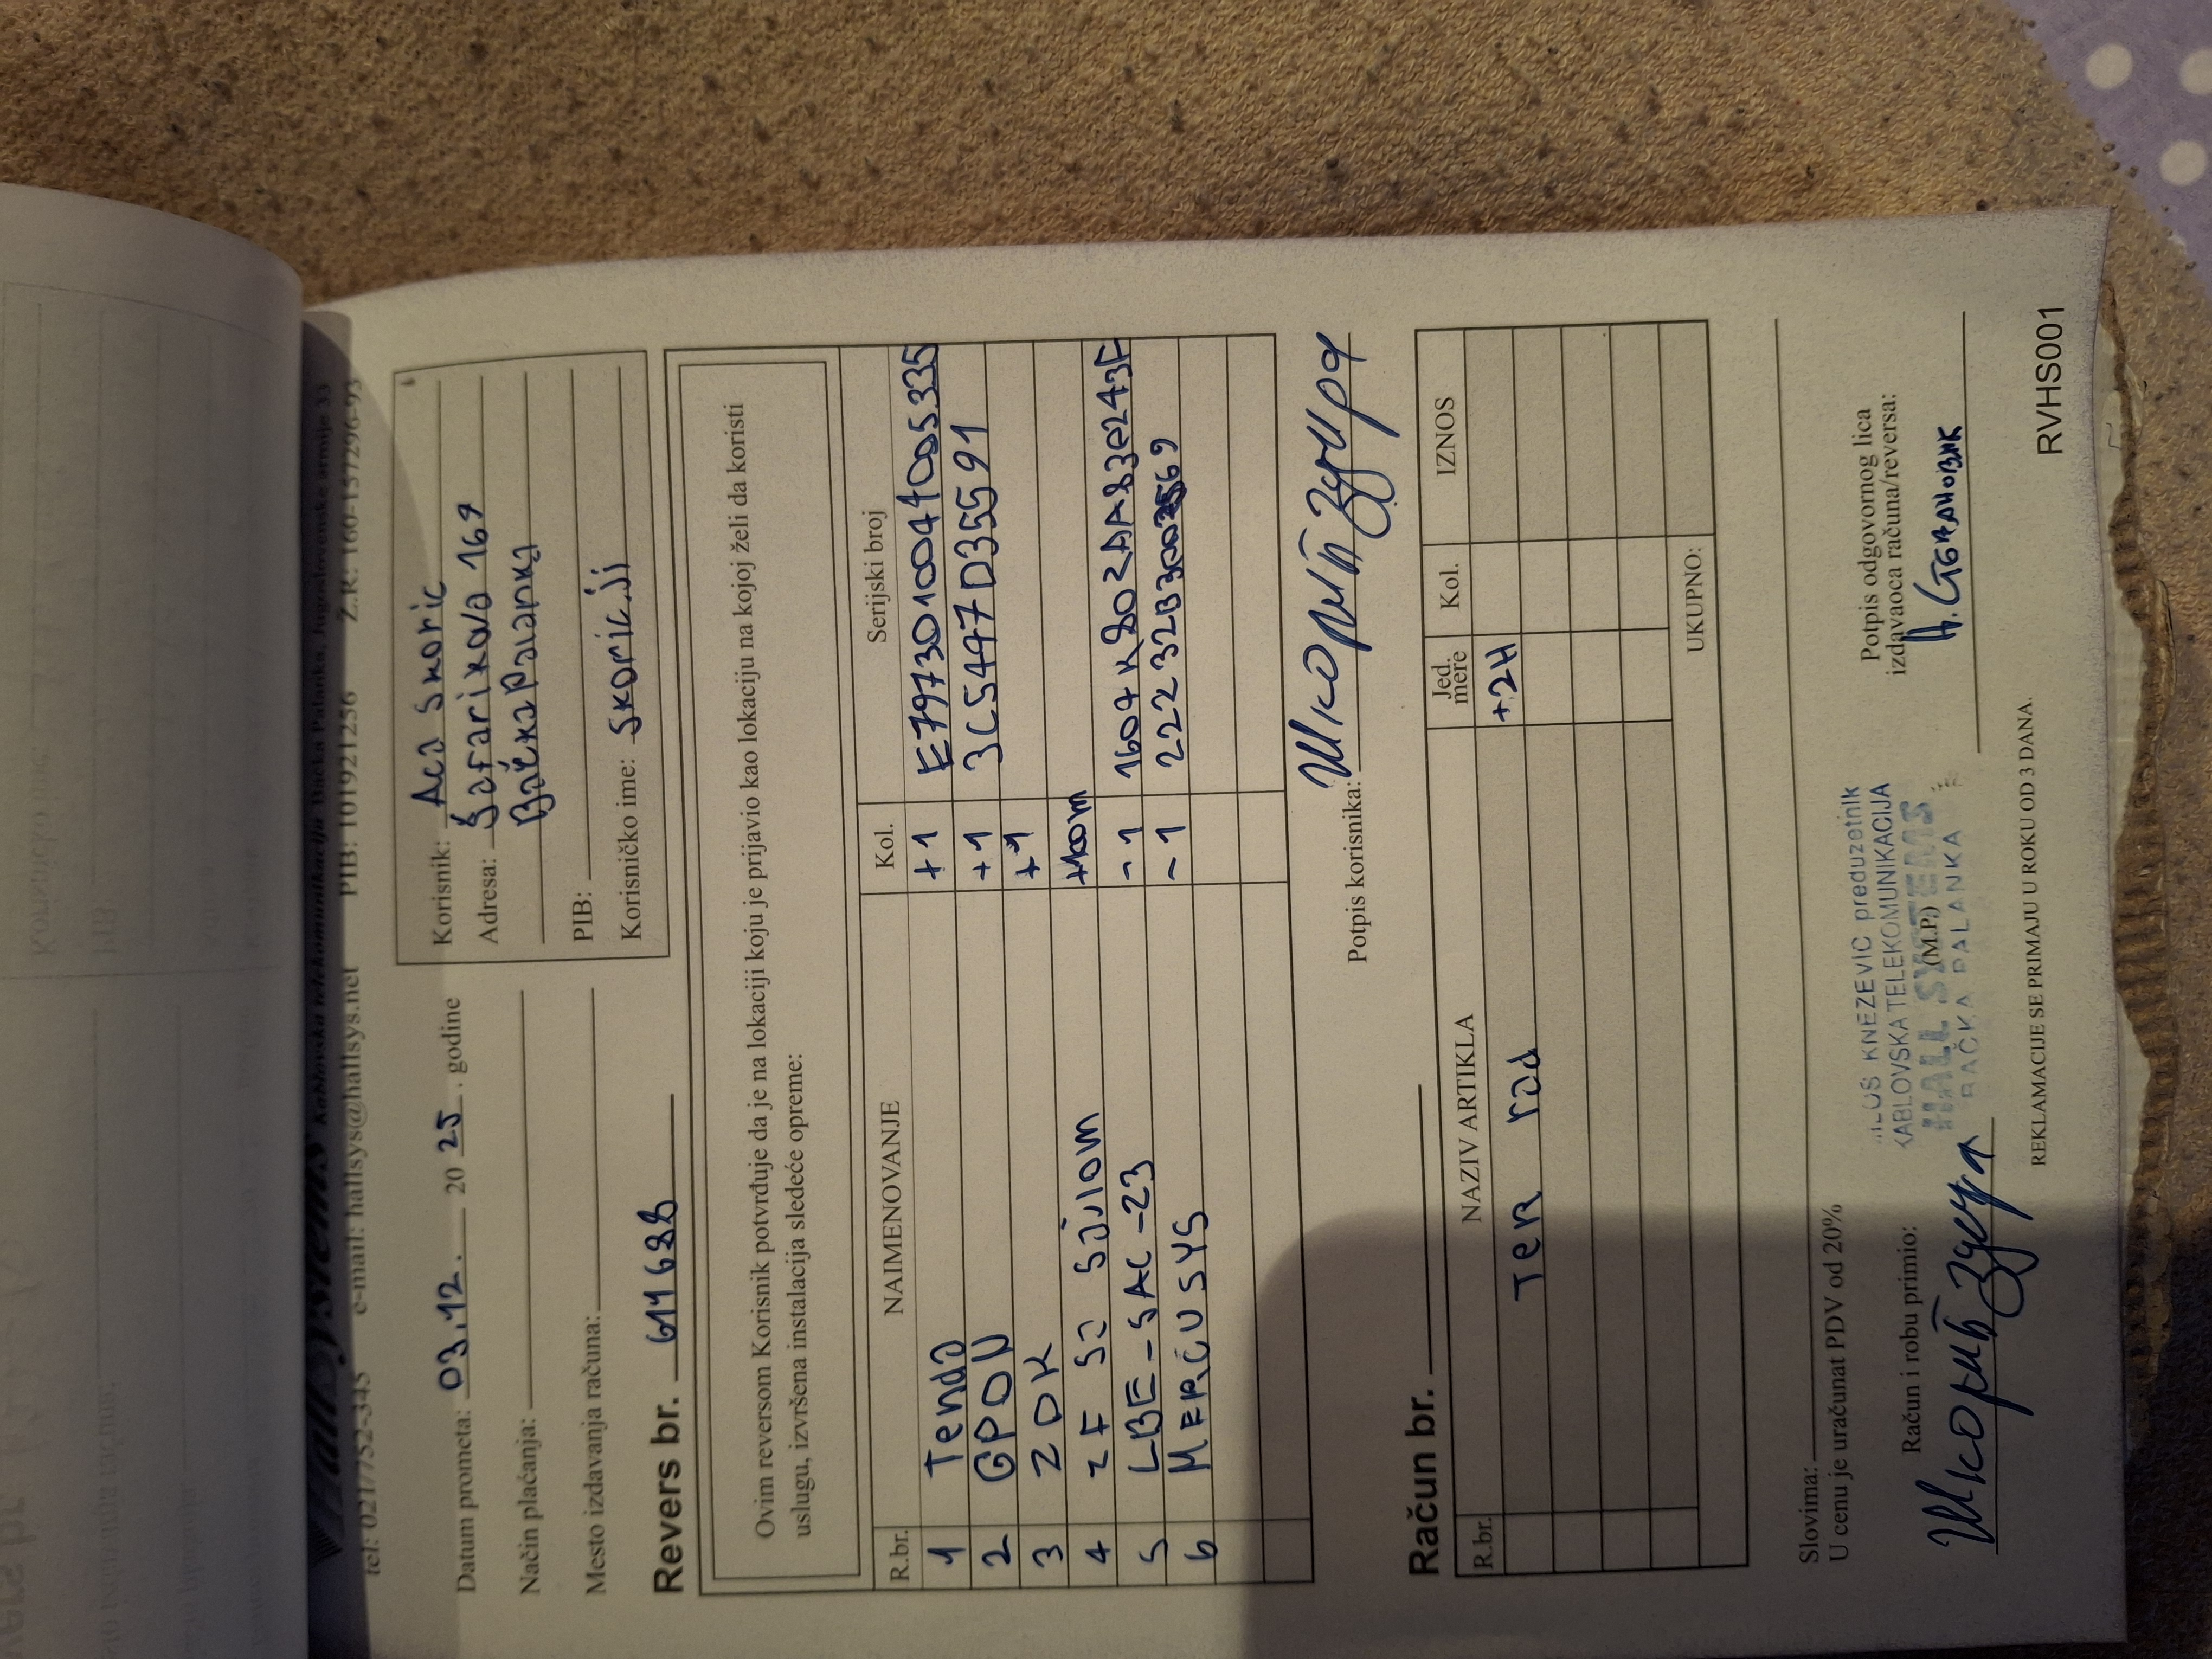 Hallsystems Kablovska telekomunikacija Bačka Palanka, Jugoslovenske armije 33
tel: 021/7752-345 e-mail: hallsys@hallsys.net PIB: 101921256 Z.R: 160-157296-93
Datum prometa: 03.12. 20 25. godine
Način plaćanja:
Mesto izdavanja računa:
Korisnik: Aca Skoric
Adresa: Šafarikova 167
Bačka Palanka
PIB:
Korisničko ime: skoric.ji
Revers br. 611688
Ovim reversom Korisnik potvrđuje da je na lokaciji koju je prijavio kao lokaciju na kojoj želi da koristi
uslugu, izvršena instalacija sledeće opreme:
R.br. NAIMENOVANJE Kol. Serijski broj
1 Tenda +1 E7973010041005335
2 GPON +1 3C5497D355591
3 ZOK +1
4 2F sa sajlom
5 LBE-5AC-23 -1 1607K802AA83e243F
6 MERCUSYS -1
Potpis korisnika: Шкорић Здура
Račun br.
R.br. NAZIV ARTIKLA Jed. mere Kol. IZNOS
Ter rad +2H
UKUPNO:
Slovima:
U cenu je uračunat PDV od 20%
Račun i robu primio:
Шкорић
MILOŠ KNEZEVIĆ preduzetnik
KABLOVSKA TELEKOMUNIKACIJA
HALL SYSTEMS
(M.P.)
BAČKA PALANKA
Potpis odgovornog lica
izdavaoca računa/reversa:
REKLAMACIJE SE PRIMAJU U ROKU OD 3 DANA.
RVHS001